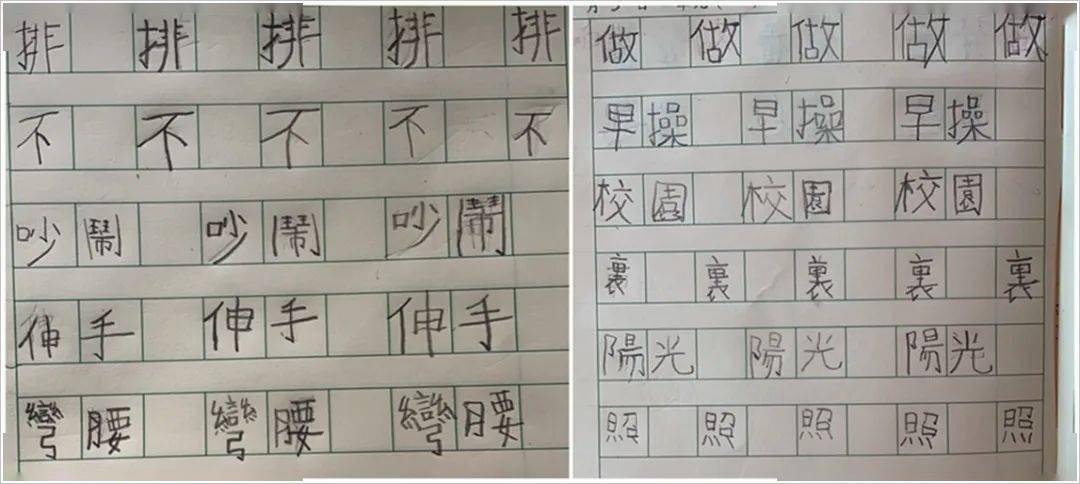 排 排 排 排 排
不 不 不 不 不
吵鬧 吵鬧 吵鬧
伸手 伸手 伸手
彎腰 彎腰 彎腰
做 做 做 做 做
早操 早操 早操
校園 校園 校園
裏 裏 裏 裏 裏
陽光 陽光 陽光
照 照 照 照 照